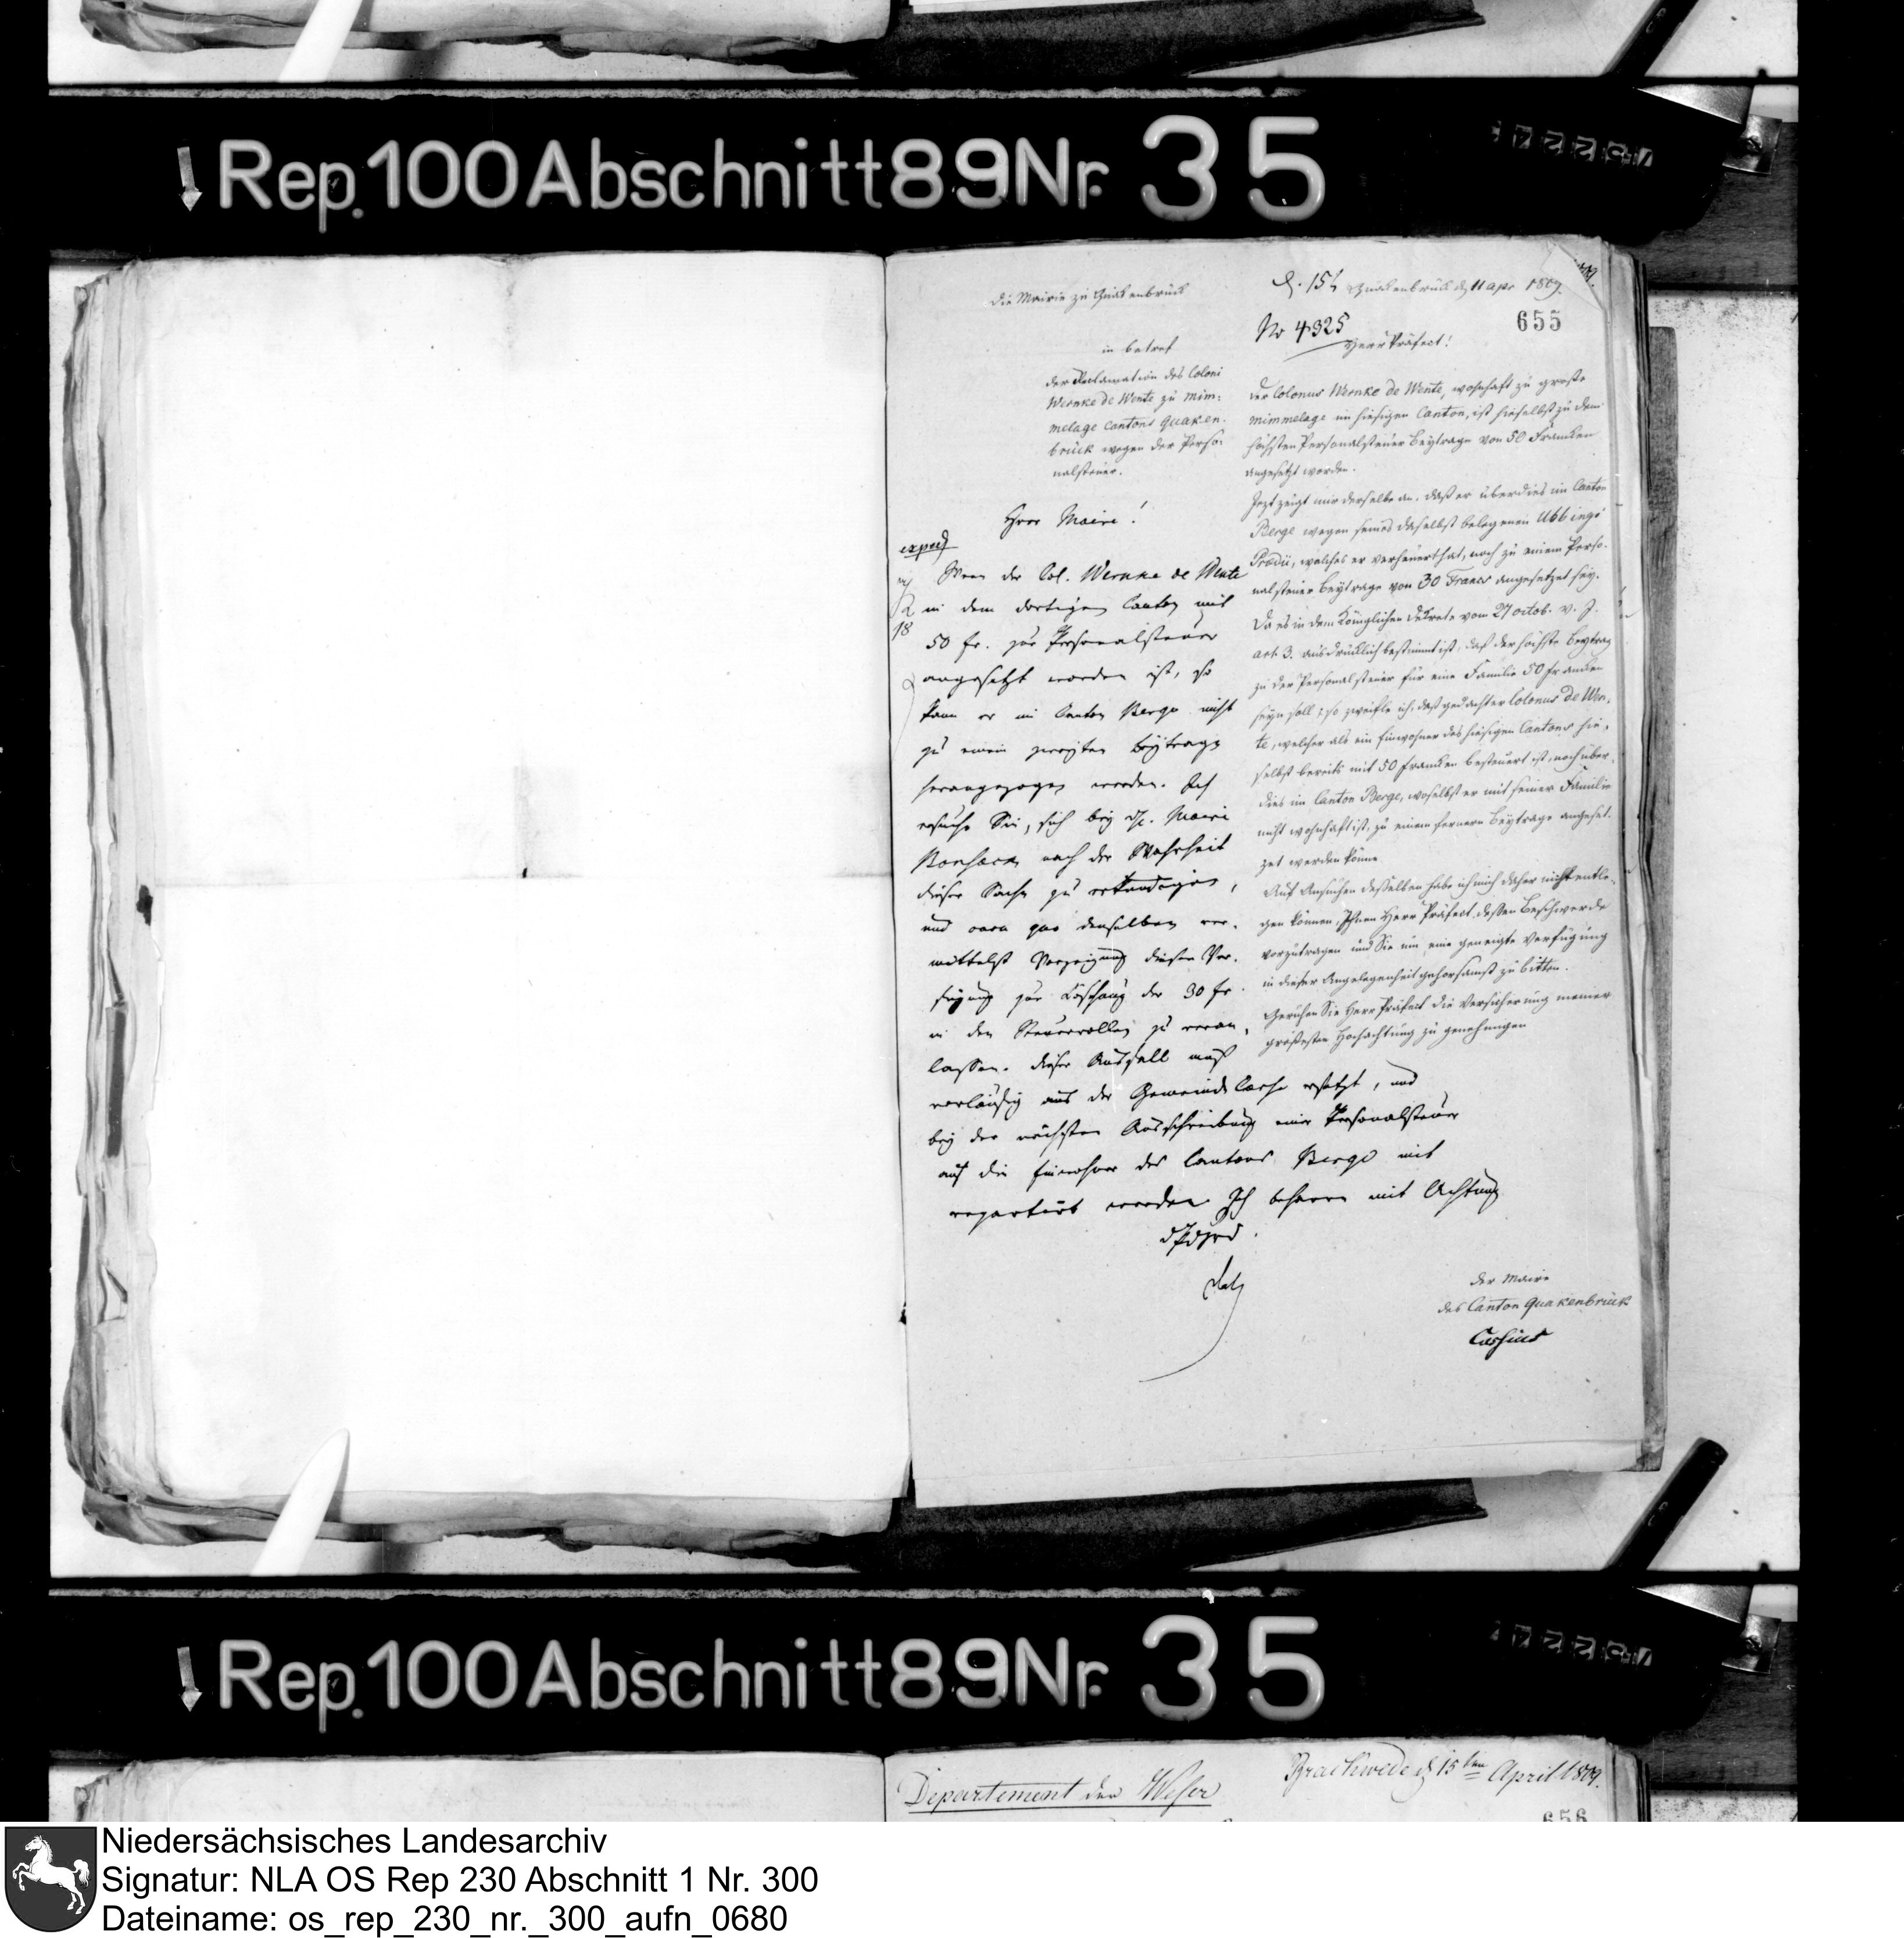 Rep. 100 Abschnitt 89 Nr. 35
Die Mairie zu Quakenbrück
Quakenbrück d 11 apr 1809.
655
No 4325
Herr Präfect!
in betref
der Reclamation des Coloni
Wernke de Wente zu Mim-
melage Cantons Quaken-
brück wegen der Perso-
nalsteuer.
Der Colonus Wernke de Wente, wohnhaft zu große
Mimmelage im hiesigen Canton, ist hieselbst zu dem
höchsten Personalsteuer Beytrage von 50 Franken
angesetzt worden.
Jezt zeigt mir derselbe an, daß er überdies im Canton
Berge wegen seines daselbst belegenen Ubbings
Prædii, welches er verheuert hat, noch zu einem Perso-
nalsteuer Beytrage von 30 Francs angesetzet sey.
Da es in dem Königlichen Dekrete vom 27 octob. v. J.
art. 3. ausdrücklich bestimmt ist, daß der höchste Beytrag
zu der Personalsteuer für eine Familie 50 franken
seyn soll; so zweifle ich, daß gedachter Colonus de Wen-
te, welcher als ein Einwohner des hiesigen Cantons hie-
selbst bereits mit 50 franken besteuert ist, noch über-
dies im Canton Berge, woselbst er mit seiner Familie
nicht wohnhaft ist, zu einem fernern Beytrage angeset-
zet werden könne.
Auf Ansuchen desselben habe ich mich daher nicht entle-
gen können, Ihnen Herr Präfect dessen Beschwerde
vorzutragen und Sie um eine geneigte Verfügung
in dieser Angelegenheit gehorsamst zu bitten.
Geruhen Sie Herr Präfect die Versicherung meiner
größesten Hochachtung zu genehmigen
Der Maire
des Canton Quakenbrück
Herr Maire!
exped
Wenn der Col. Wernke de Wente
in dem dortigen Canton mit
50 fr. zur Personalsteuer
angesetzt worden ist, so
kann er im Canton Berge nicht
zu einem zweyten Beytrage
herangezogen werden. Ich
ersuche Sie, sich bey H. Maire
nach der Wahrheit
dieser Sache zu erkundigen,
und denselben ver-
mittelst Vorzeigung dieser Ver-
fügung zur Löschung der 30 fr.
in den Steuerrollen zu veran-
lassen. Dieser Ausfall muß
vorläufig aus der Gemeinde Casse ersetzt, und
bey der nächsten Ausschreibung einer Personalsteuer
auf die Einwohner des Cantons Berge mit
repartirt werden. Ich beharre mit Achtung
Rep. 100 Abschnitt 89 Nr. 35
Departement der Weser
Brackwede d 15ten April 1809.
656
Niedersächsisches Landesarchiv
Signatur: NLA OS Rep 230 Abschnitt 1 Nr. 300
Dateiname: os_rep_230_nr._300_aufn_0680